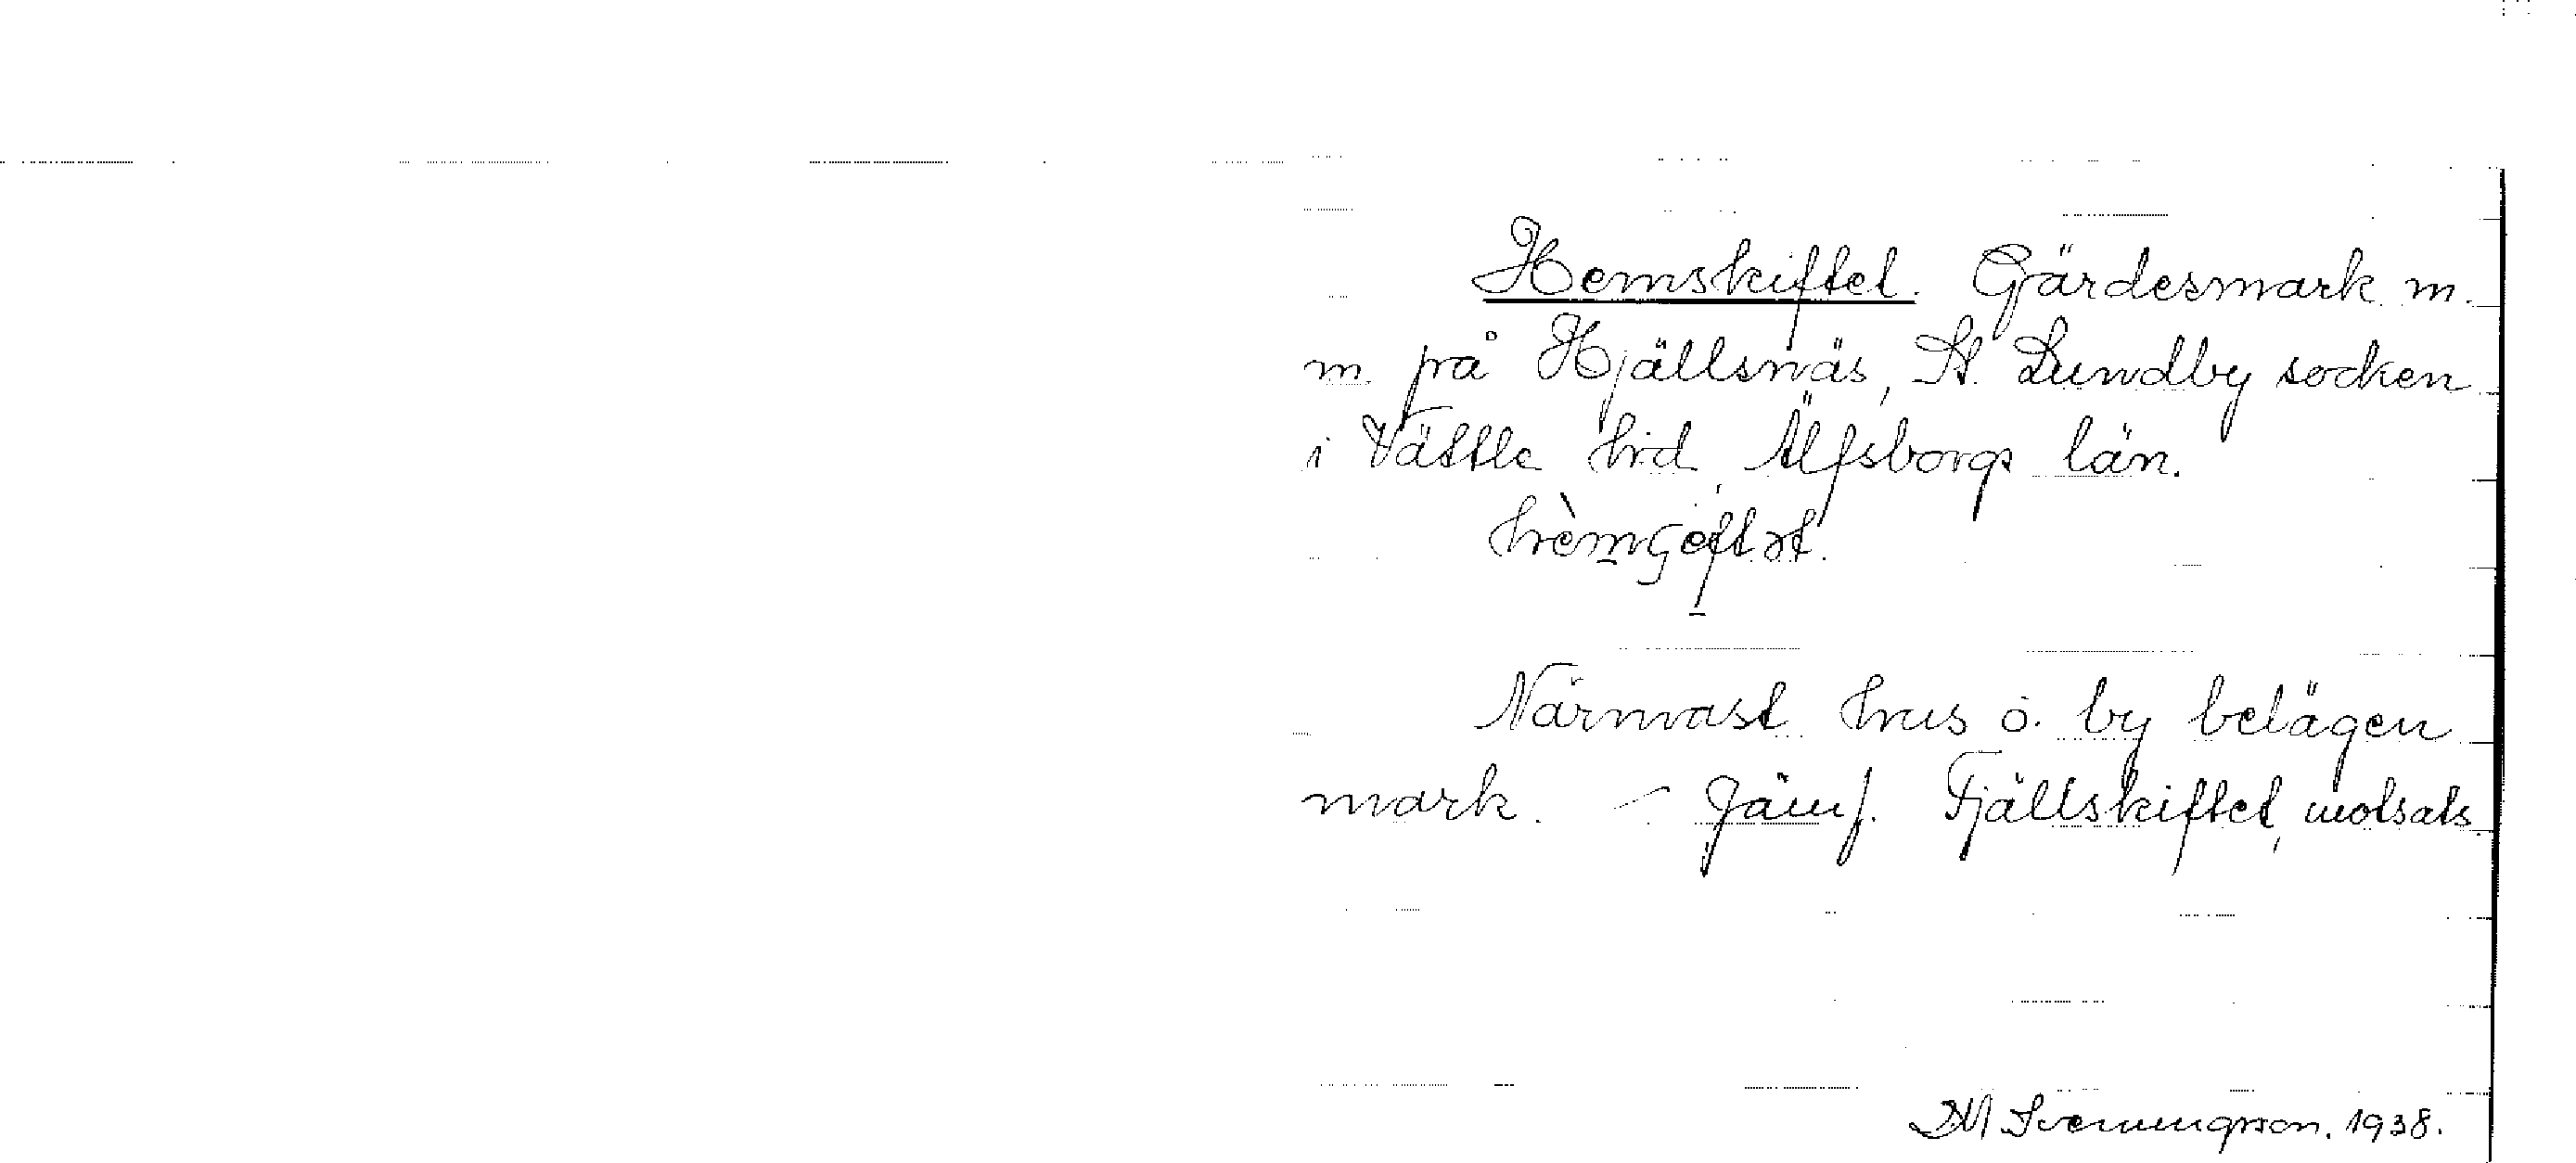 Hemskiftet. Gärdesmark m.
m. på Hjällsnäs, St. Lundby socken
i Vättle hrd, Älfsborgs län.
hèmʂeftət.
Närmast hus o. by belägen
mark. - Jämf. Fjällskiftet, motsats.
DM Svenningsson. 1938.